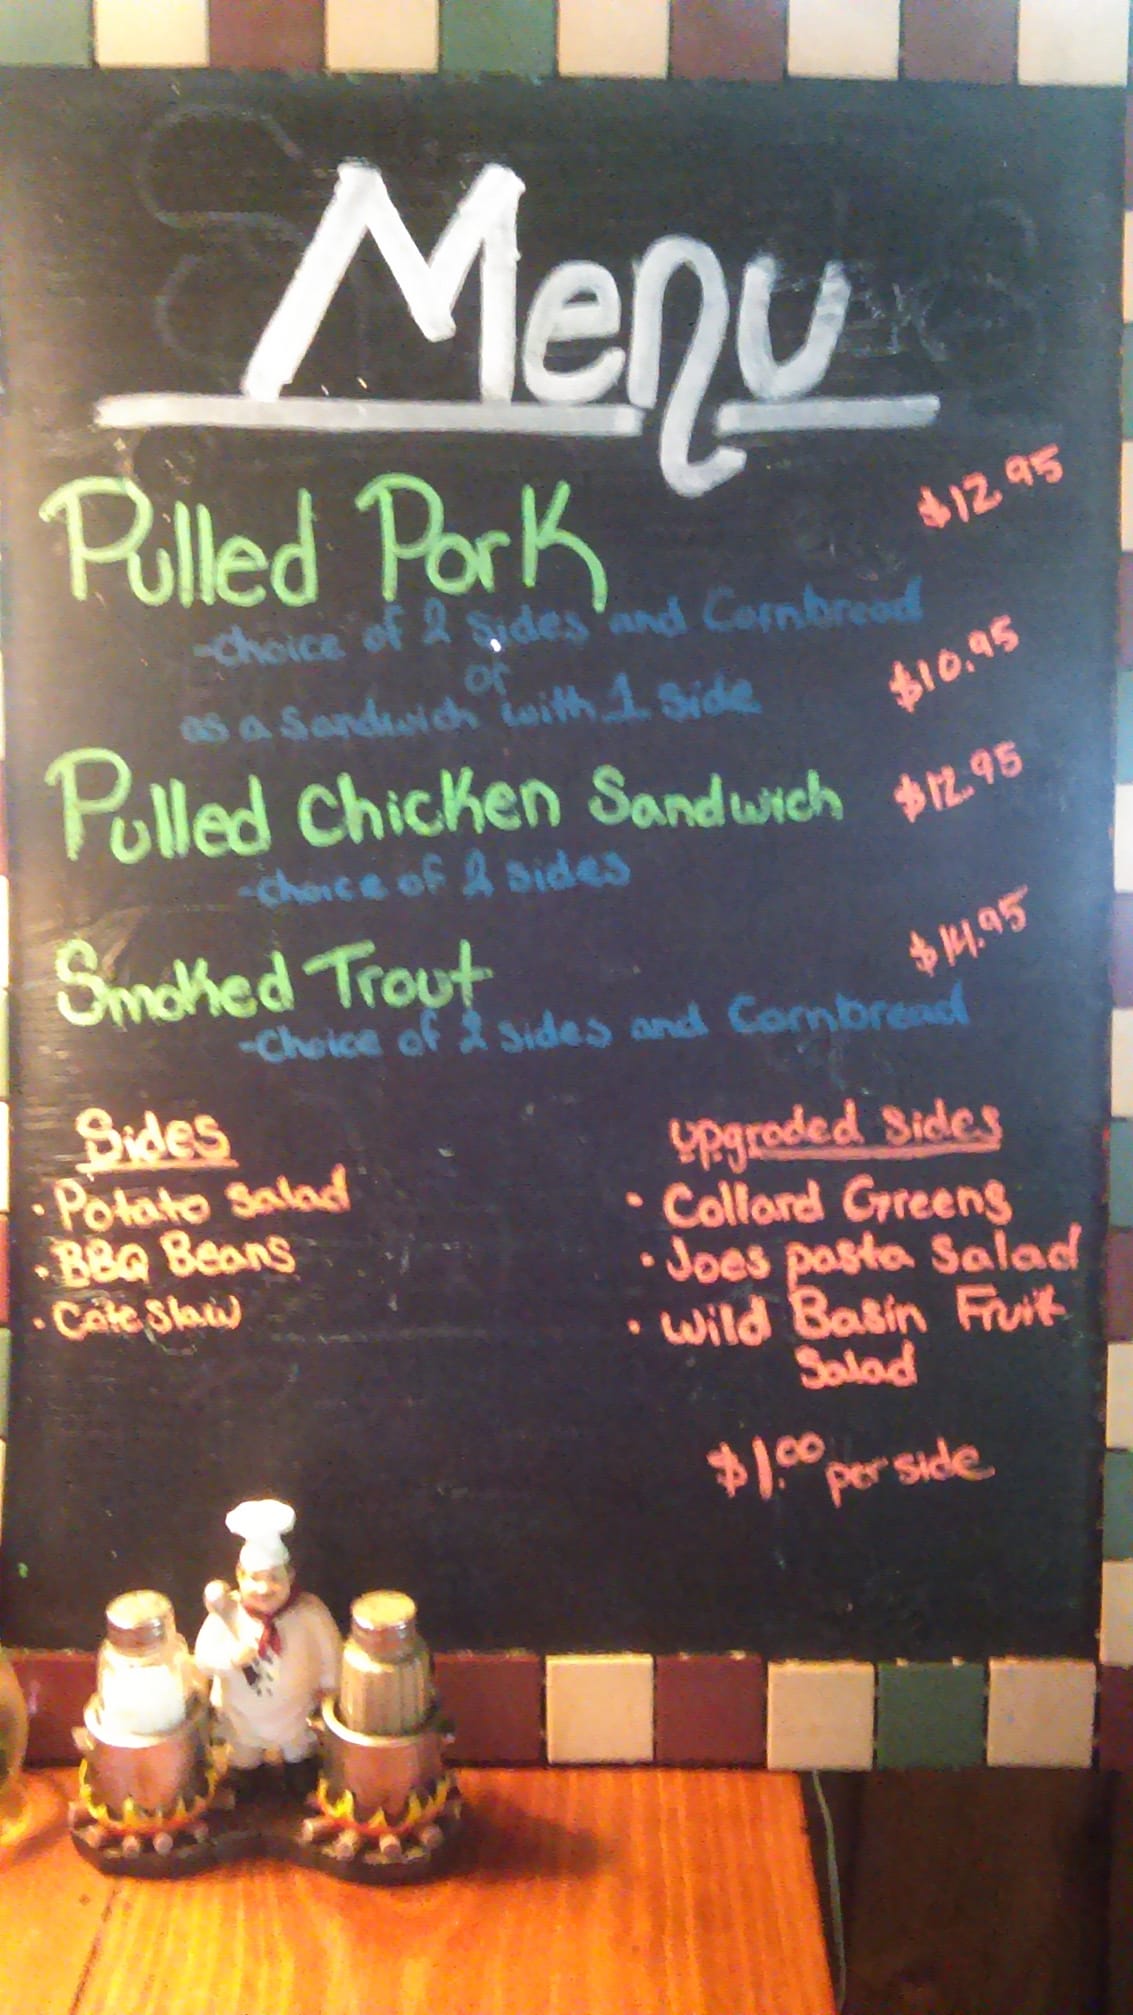 Menu
Pulled Pork $12.95
-choice of 2 sides and Cornbread
or
as a sandwich with 1 side $10.95
Pulled chicken Sandwich $12.95
-choice of 2 sides
Smoked Trout $14.95
-choice of 2 sides and Cornbread
Sides
• Potato salad
• BBQ Beans
• Cole Slaw
upgraded sides
• Collard Greens
• Joes pasta Salad
• Wild Basin Fruit
Salad
$1.00 per side